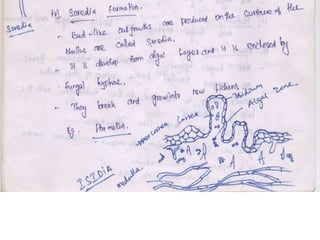 Soredia
(v). Soredia Formation.
- Bud-like outgrowths are produced on the surface of the
thallus are called Soredia.
- It is develop from algal layer and it is enclosed by
Fungal hyphae.
- They break and grow into new lichens.
Eg. Parmelia.
Algal zone
upper cortex
ISIDIA
medulla